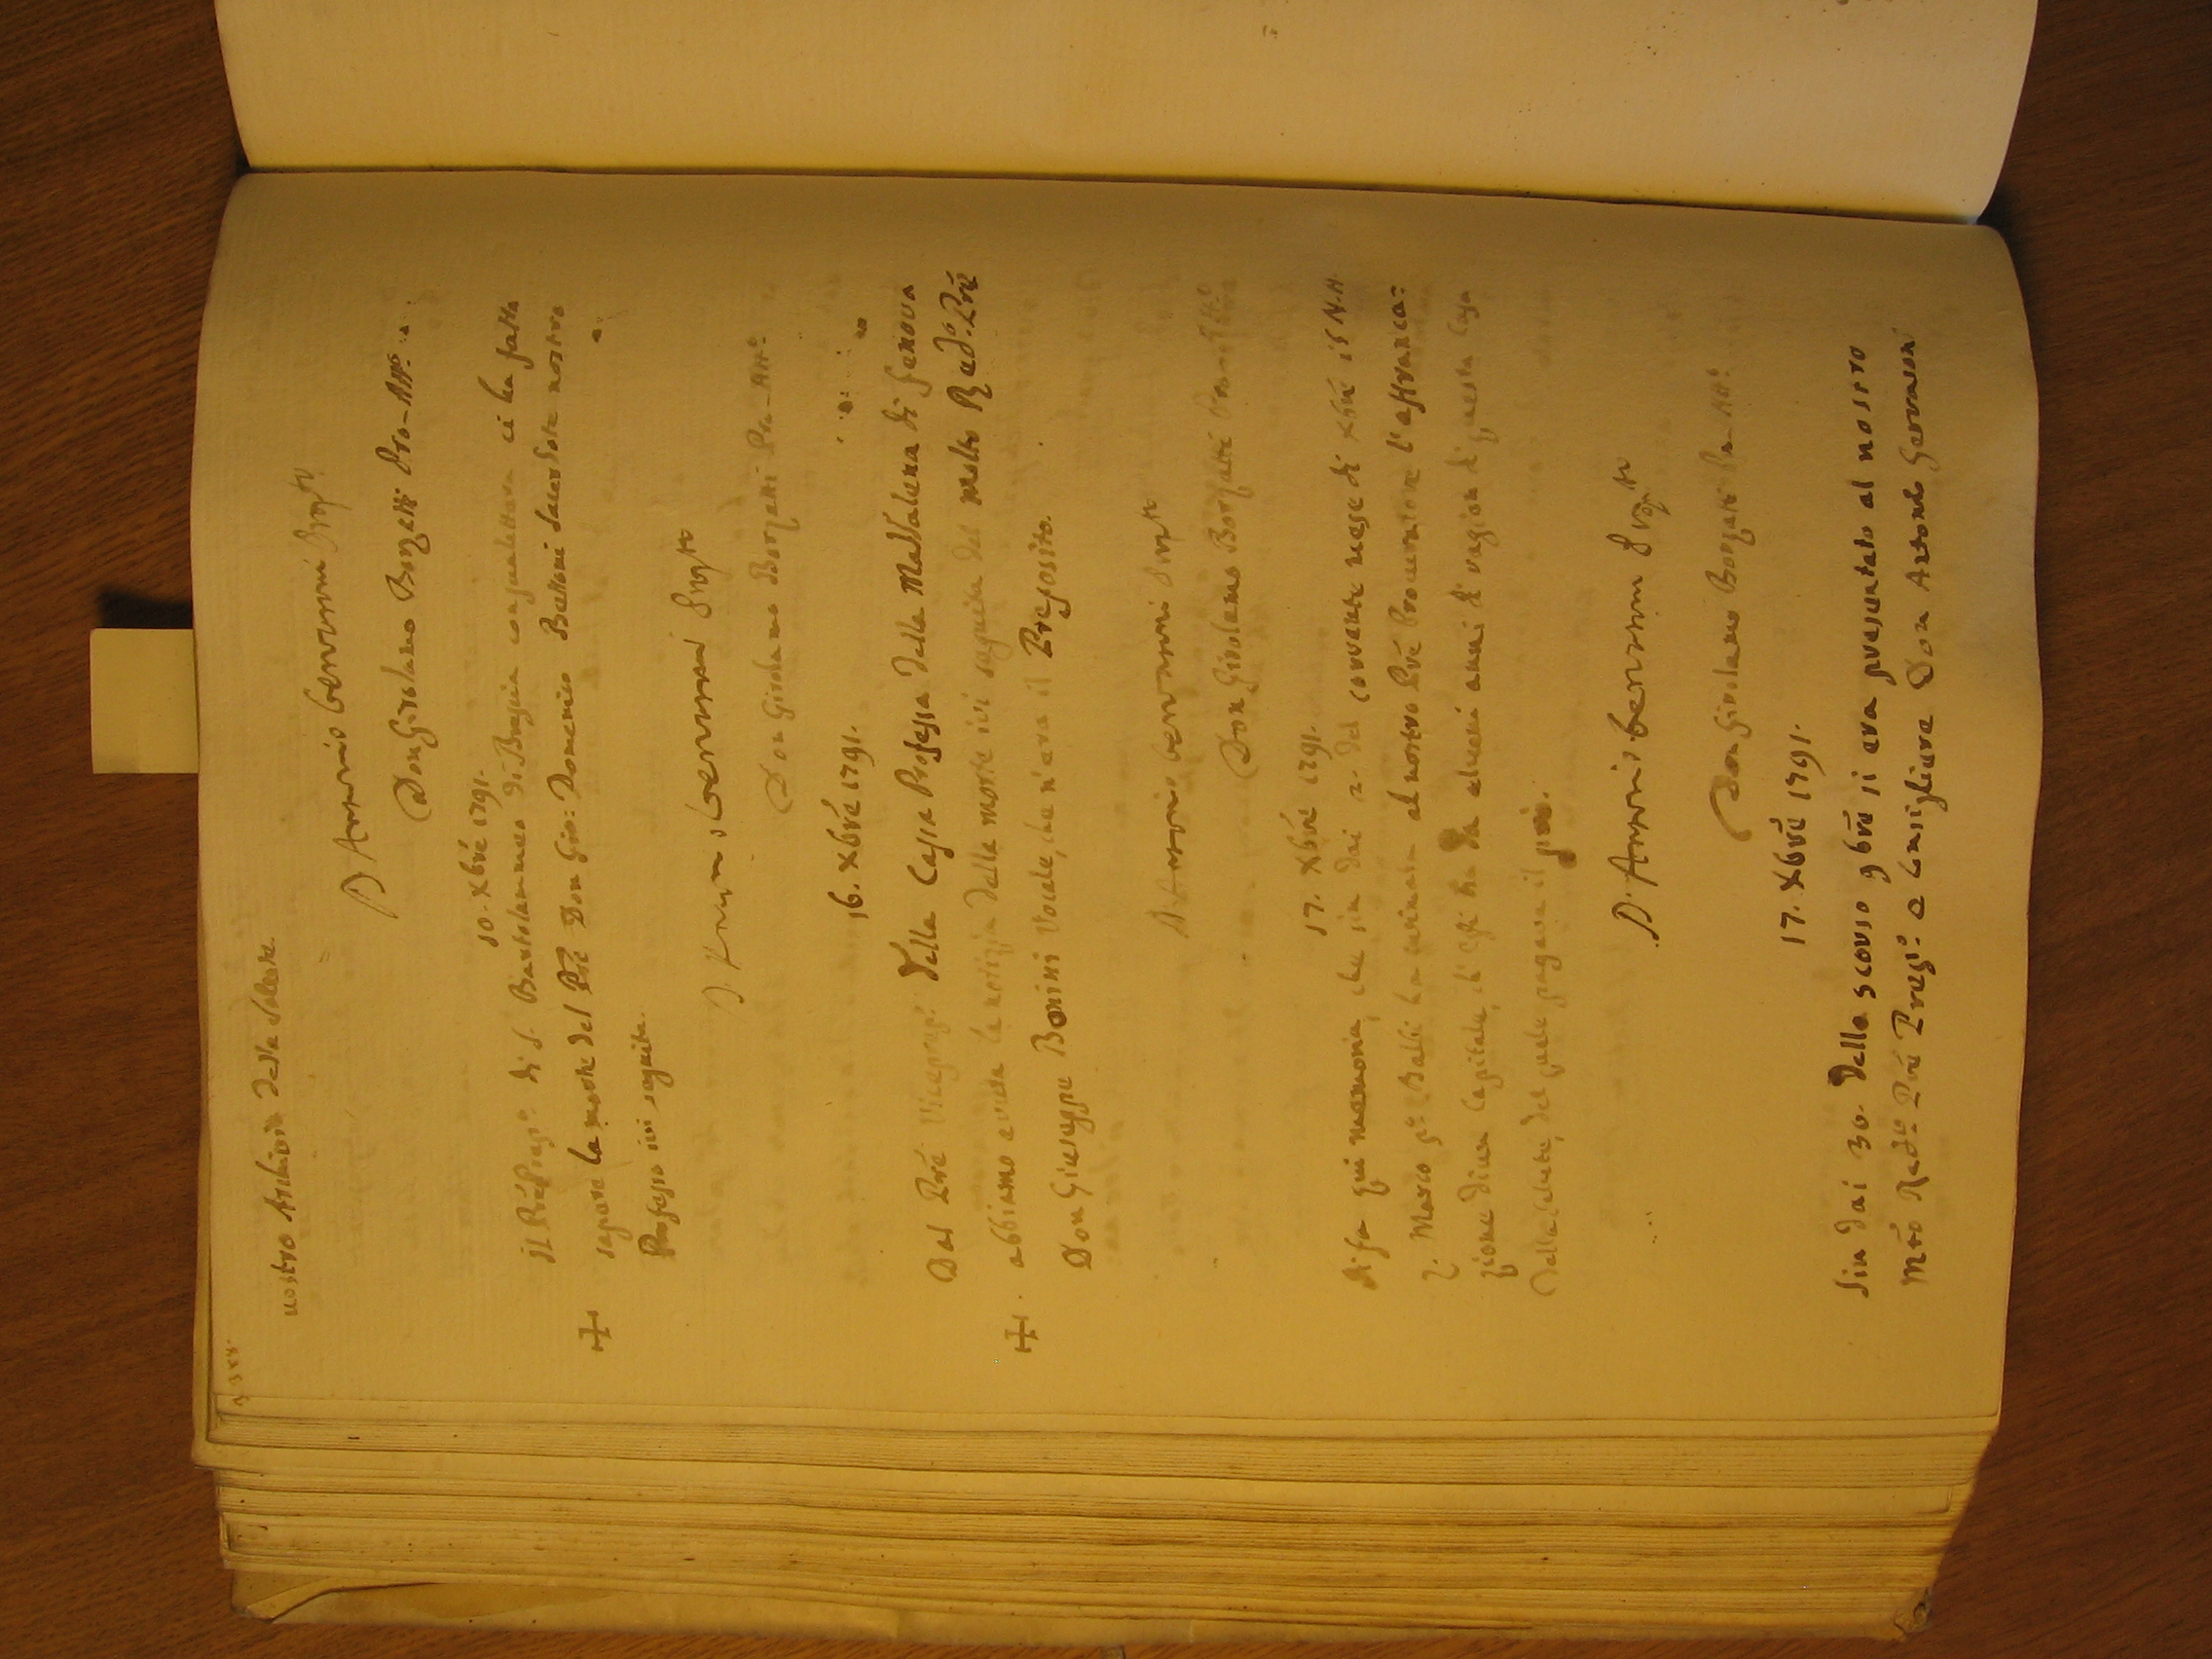 nostro Archivio della Salute.
D. Antonio Cervasoni Prop.to
Don Girolamo Bonzetti Pro-Att.o
10. Xbre 1791.
Il Pre Prep.o di S. Bartolammeo di Brescia ci ha fatta
sapere la morte del Pre Don Gio: Domenico Bettoni Sacerdote nostro
Professo ivi seguita.
D. Antonio Gervasoni Prop.to
Don Girolamo Bonzetti Pro-Att.o
16. Xbre 1791.
Dal Pre Viceprep.o della Casa Professa della Madalena di Genova
abbiamo avuta la notizia della morte ivi seguita del molto Rev.do Pre
Don Giuseppe Bonini Vocale, che n'era il Preposito.
D. Antonio Gervasoni Prop.to
Don Girolamo Bonzetti Pro-Att.o
17. Xbre 1791.
Si fa qui memoria, che sin dai 2. del corrente mese di Xbre il N.H.
Z. Marco Balbi al nostro Pre Procuratore l'affranca=
zione di un Capitale, ch'Egli ha da alcuni anni di ragion di questa Casa
della Salute, del quale pagava il prò.
D. Antonio Gervasoni Prop.to
Don Girolamo Bonzetti Pro-Att.o
17. Xbre 1791.
Sin dai 30. dello scorso 9bre si era presentato al nostro
Mto Rev.do Pre Prep.o e Consigliere Don Antonio Gervasoni